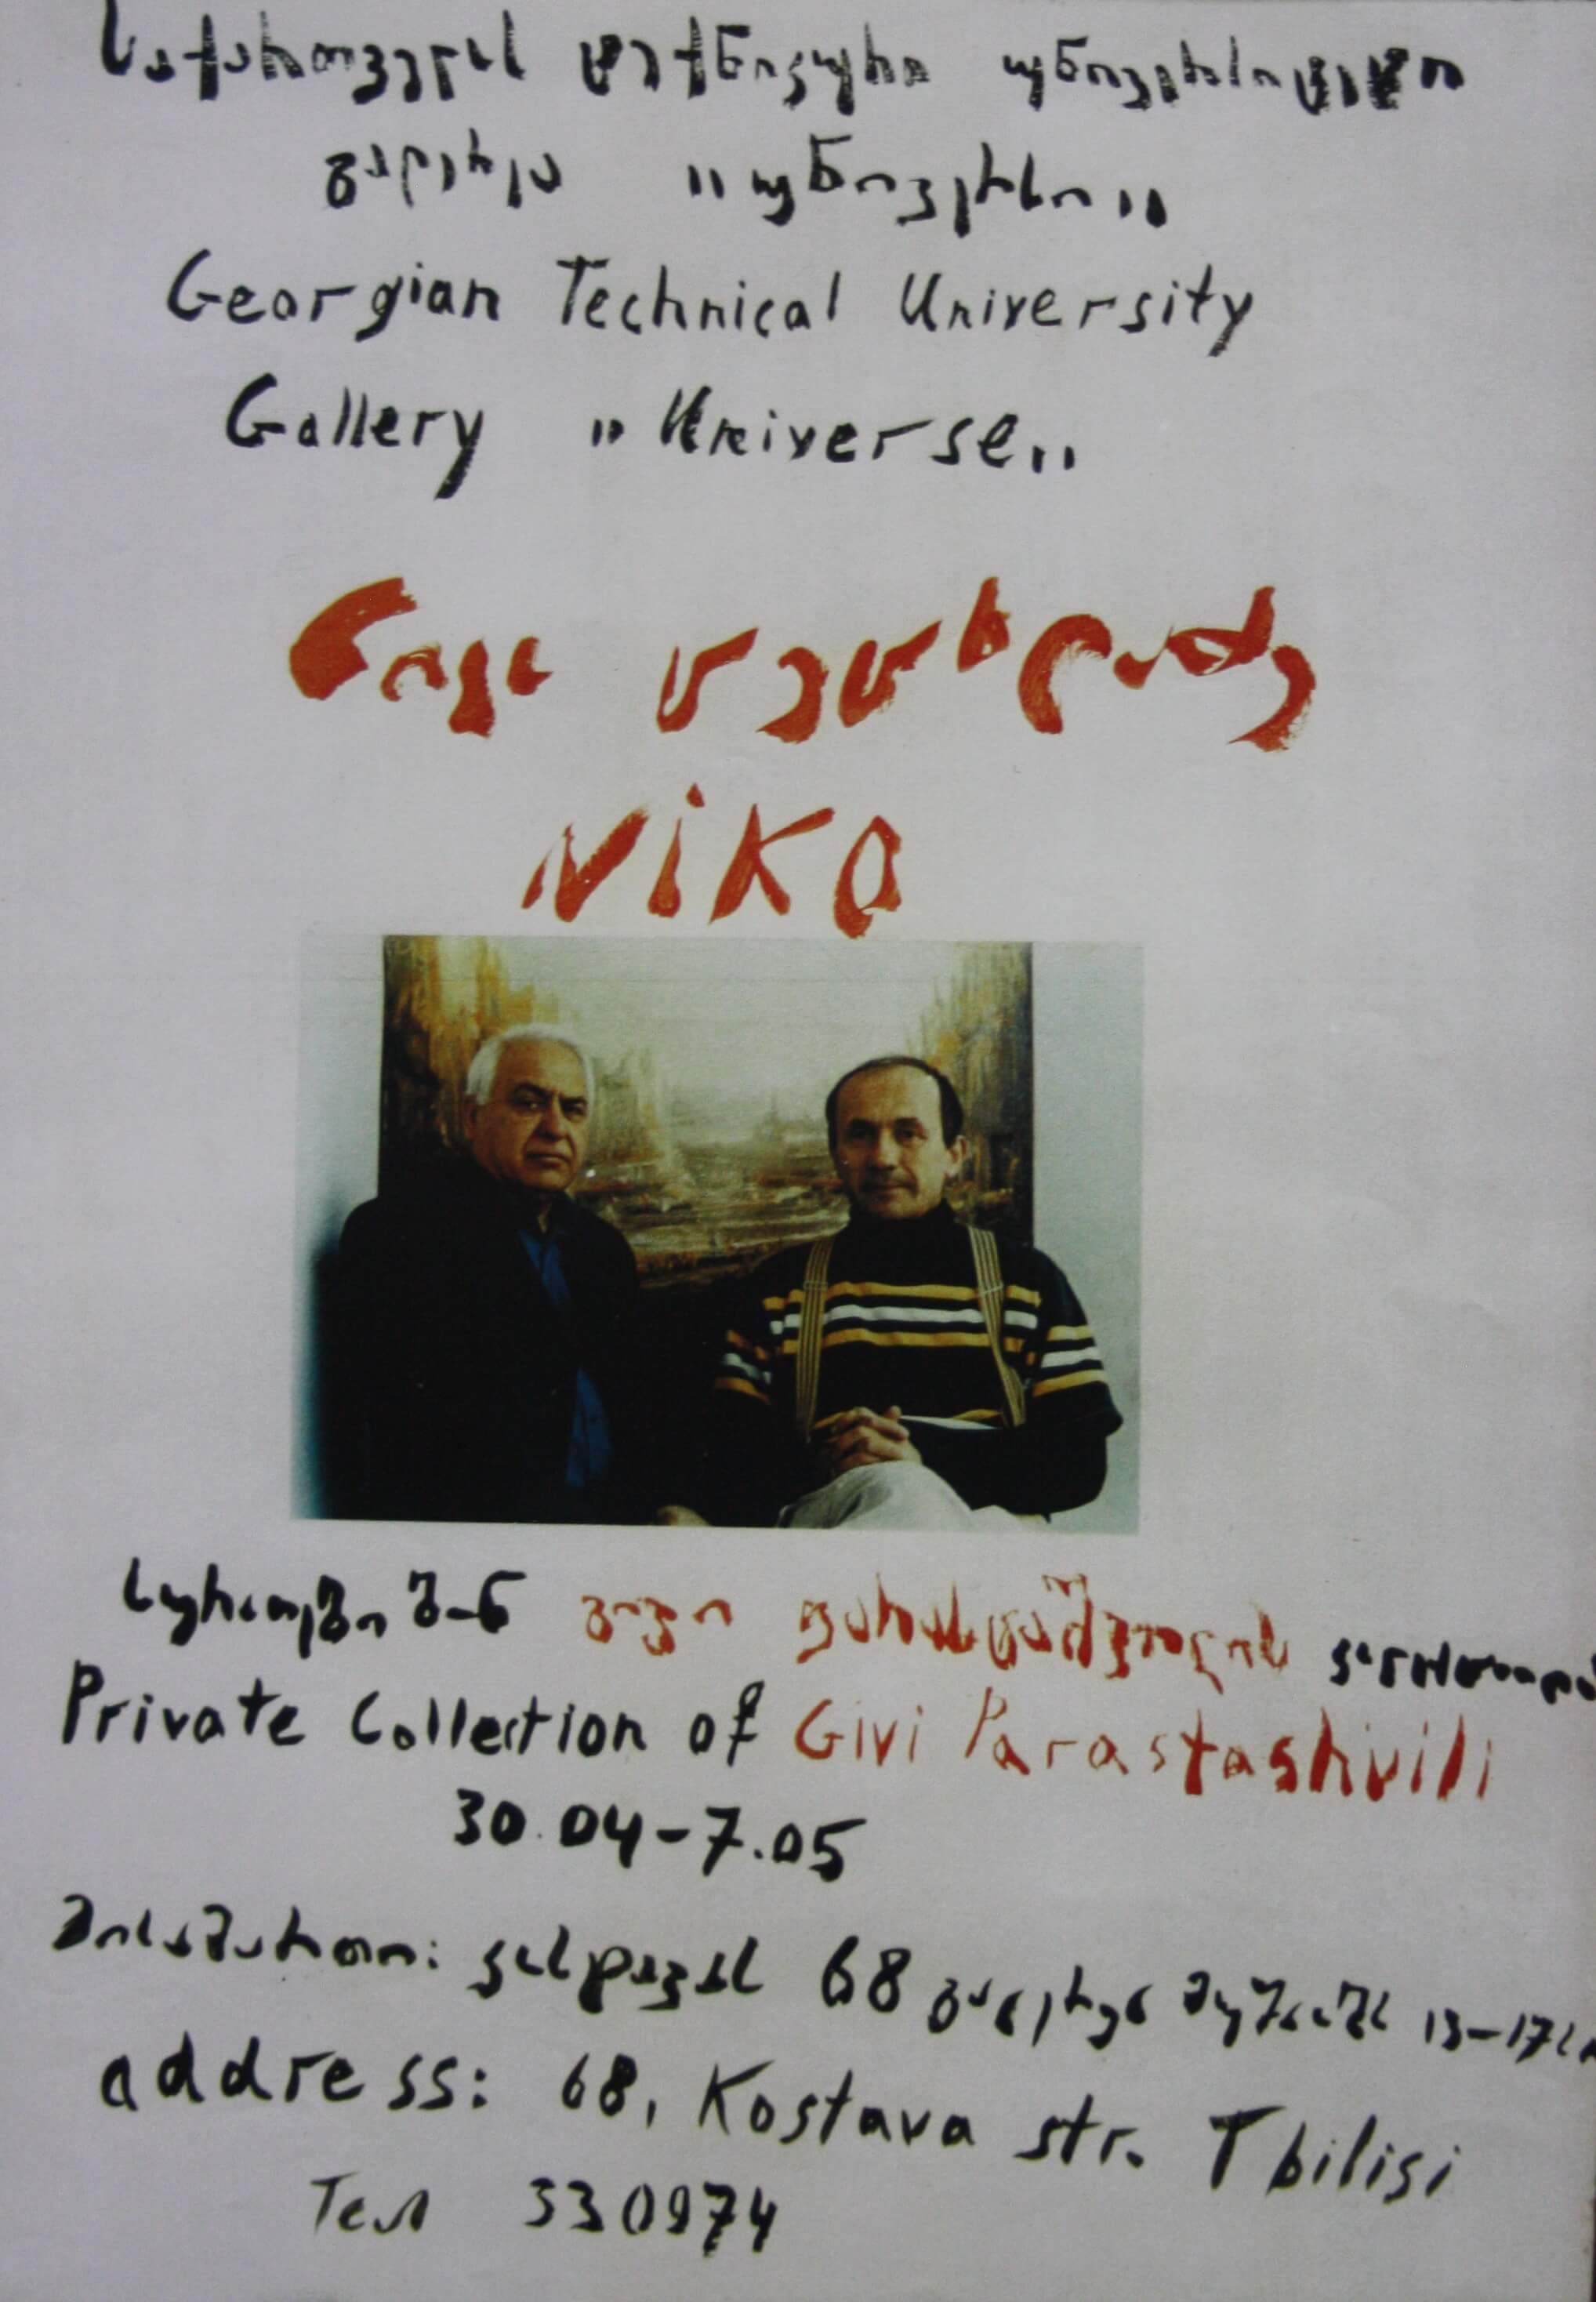 საქართველოს ტექნიკური უნივერსიტეტი
გალერეა "უნივერსი"
Georgian Technical University
Gallery "Universe"
ნიკა ცეცხლაძე
NiKO
სურათები გ-ნ გივი ფარასტაშვილის
Private Collection of Givi Parastashvili
30.04-7.05
მისამართი: კოსტავას 68 13-17
address: 68, Kostava str. Tbilisi
Тел 330974